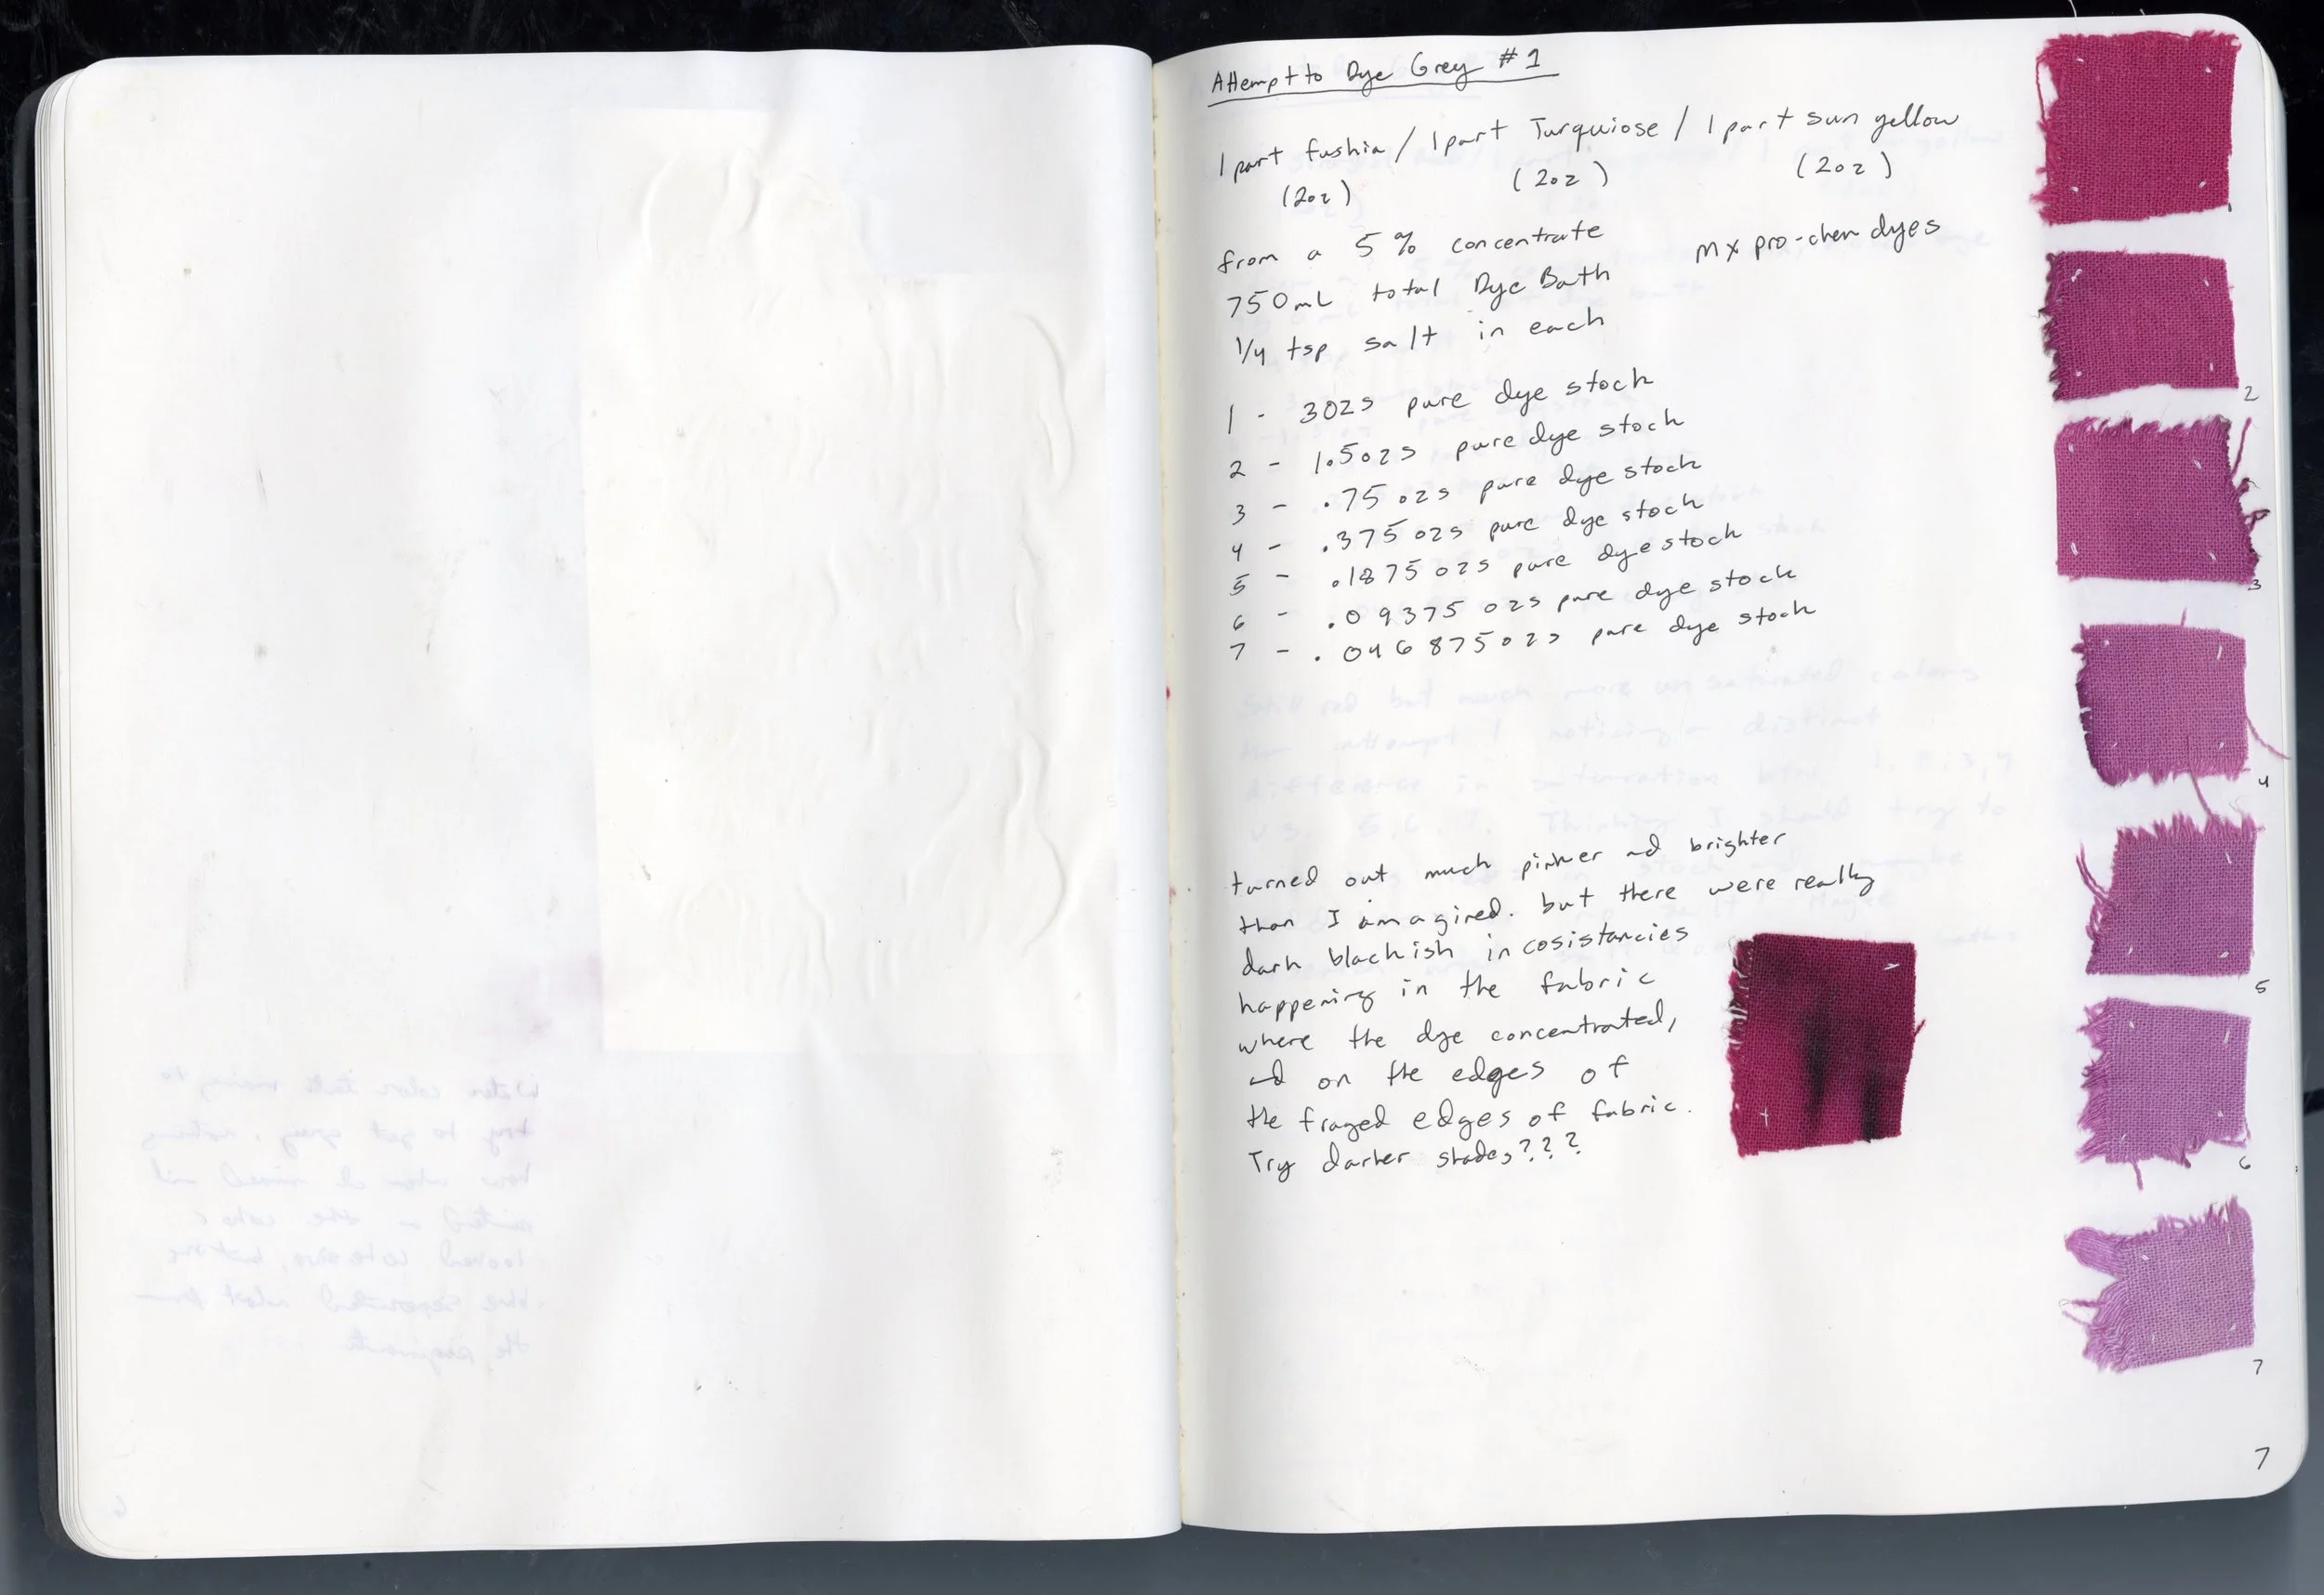 Attempt to Dye Grey #1
1 part fushia / 1 part Turquiose / 1 part sun yellow
(2oz) (2oz) (2oz)
from a 5% concentrate mx pro-chem dyes
750mL total Dye Bath
1/4 tsp salt in each
1 - 3ozs pure dye stock
2 - 1.5ozs pure dye stock
3 - .75 ozs pure dye stock
4 - .375 ozs pure dye stock
5 - .1875 ozs pure dye stock
6 - .09375 ozs pure dye stock
7 - .046875ozs pure dye stock
turned out much pinker and brighter
than I imagined. but there were really
dark blackish incosistancies
happening in the fabric
where the dye concentrated,
and on the edges of
the frayed edges of fabric.
Try darker shades???
1
2
3
4
5
6
7
7